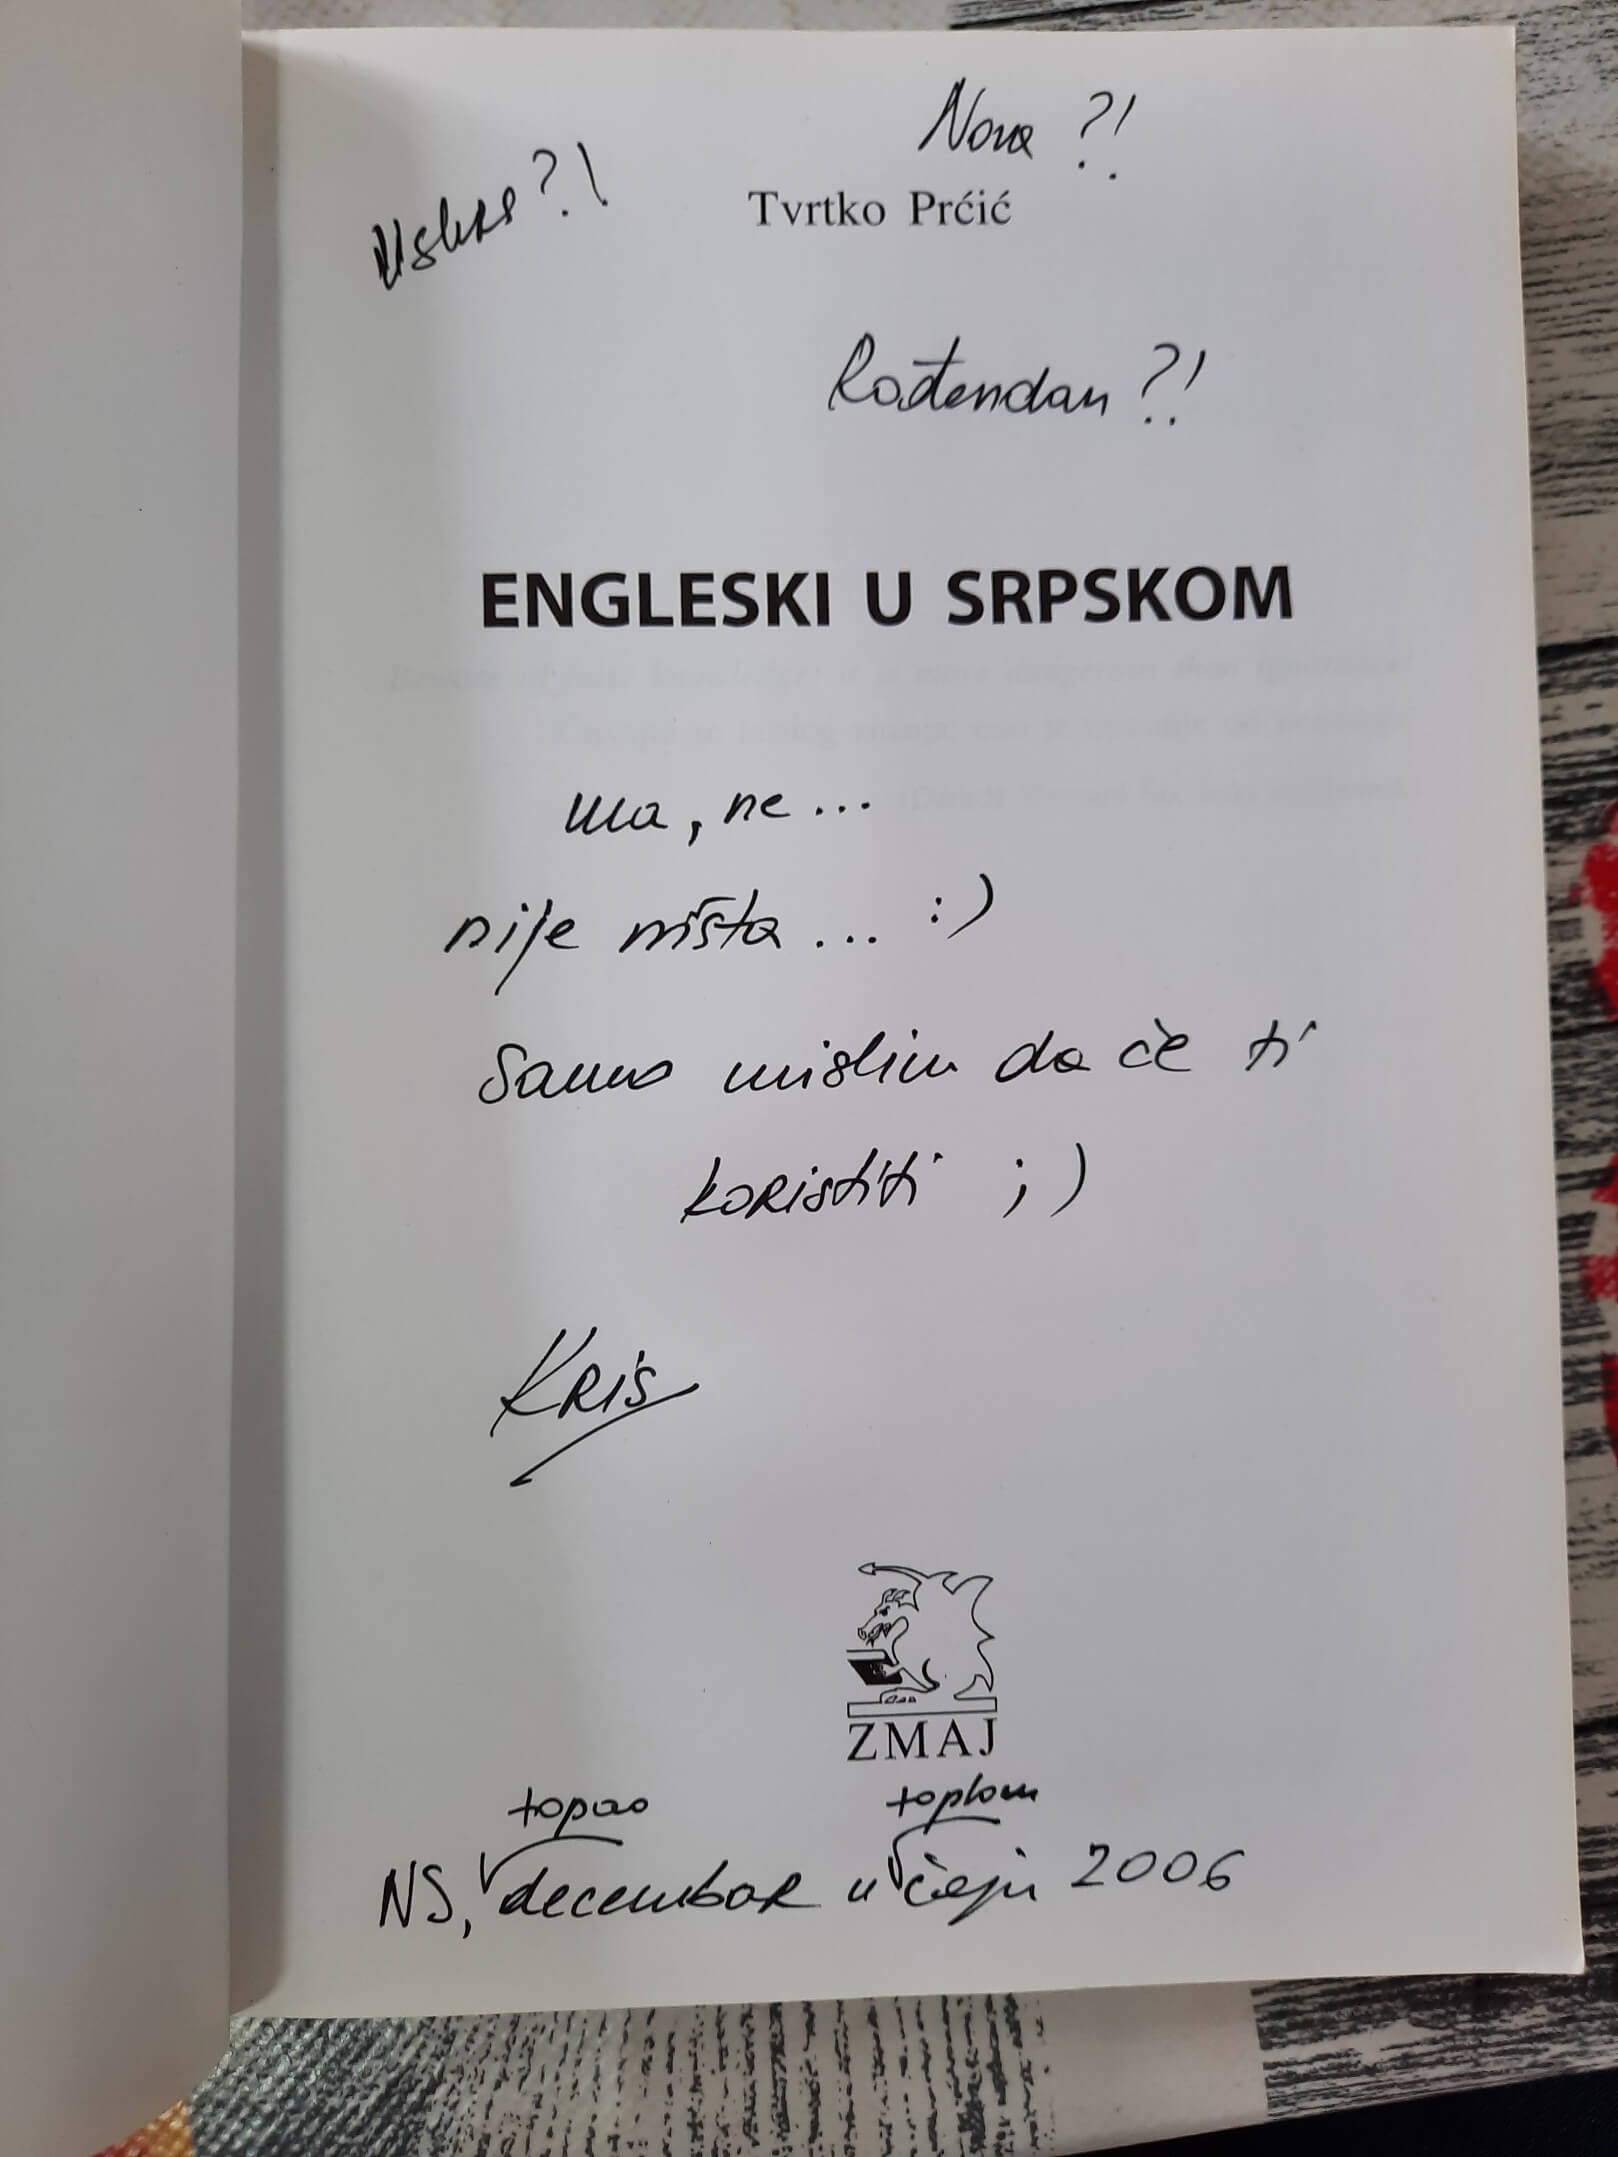 Nova ?!
Uskrs ?!
Tvrtko Prćić
Rođendan ?!
ENGLESKI U SRPSKOM
ma, ne ...
nije ništa ... :)
Samo mislim da će ti
koristiti ;)
Kris
ZMAJ
topao toplom
NS, decembar u čaju 2006